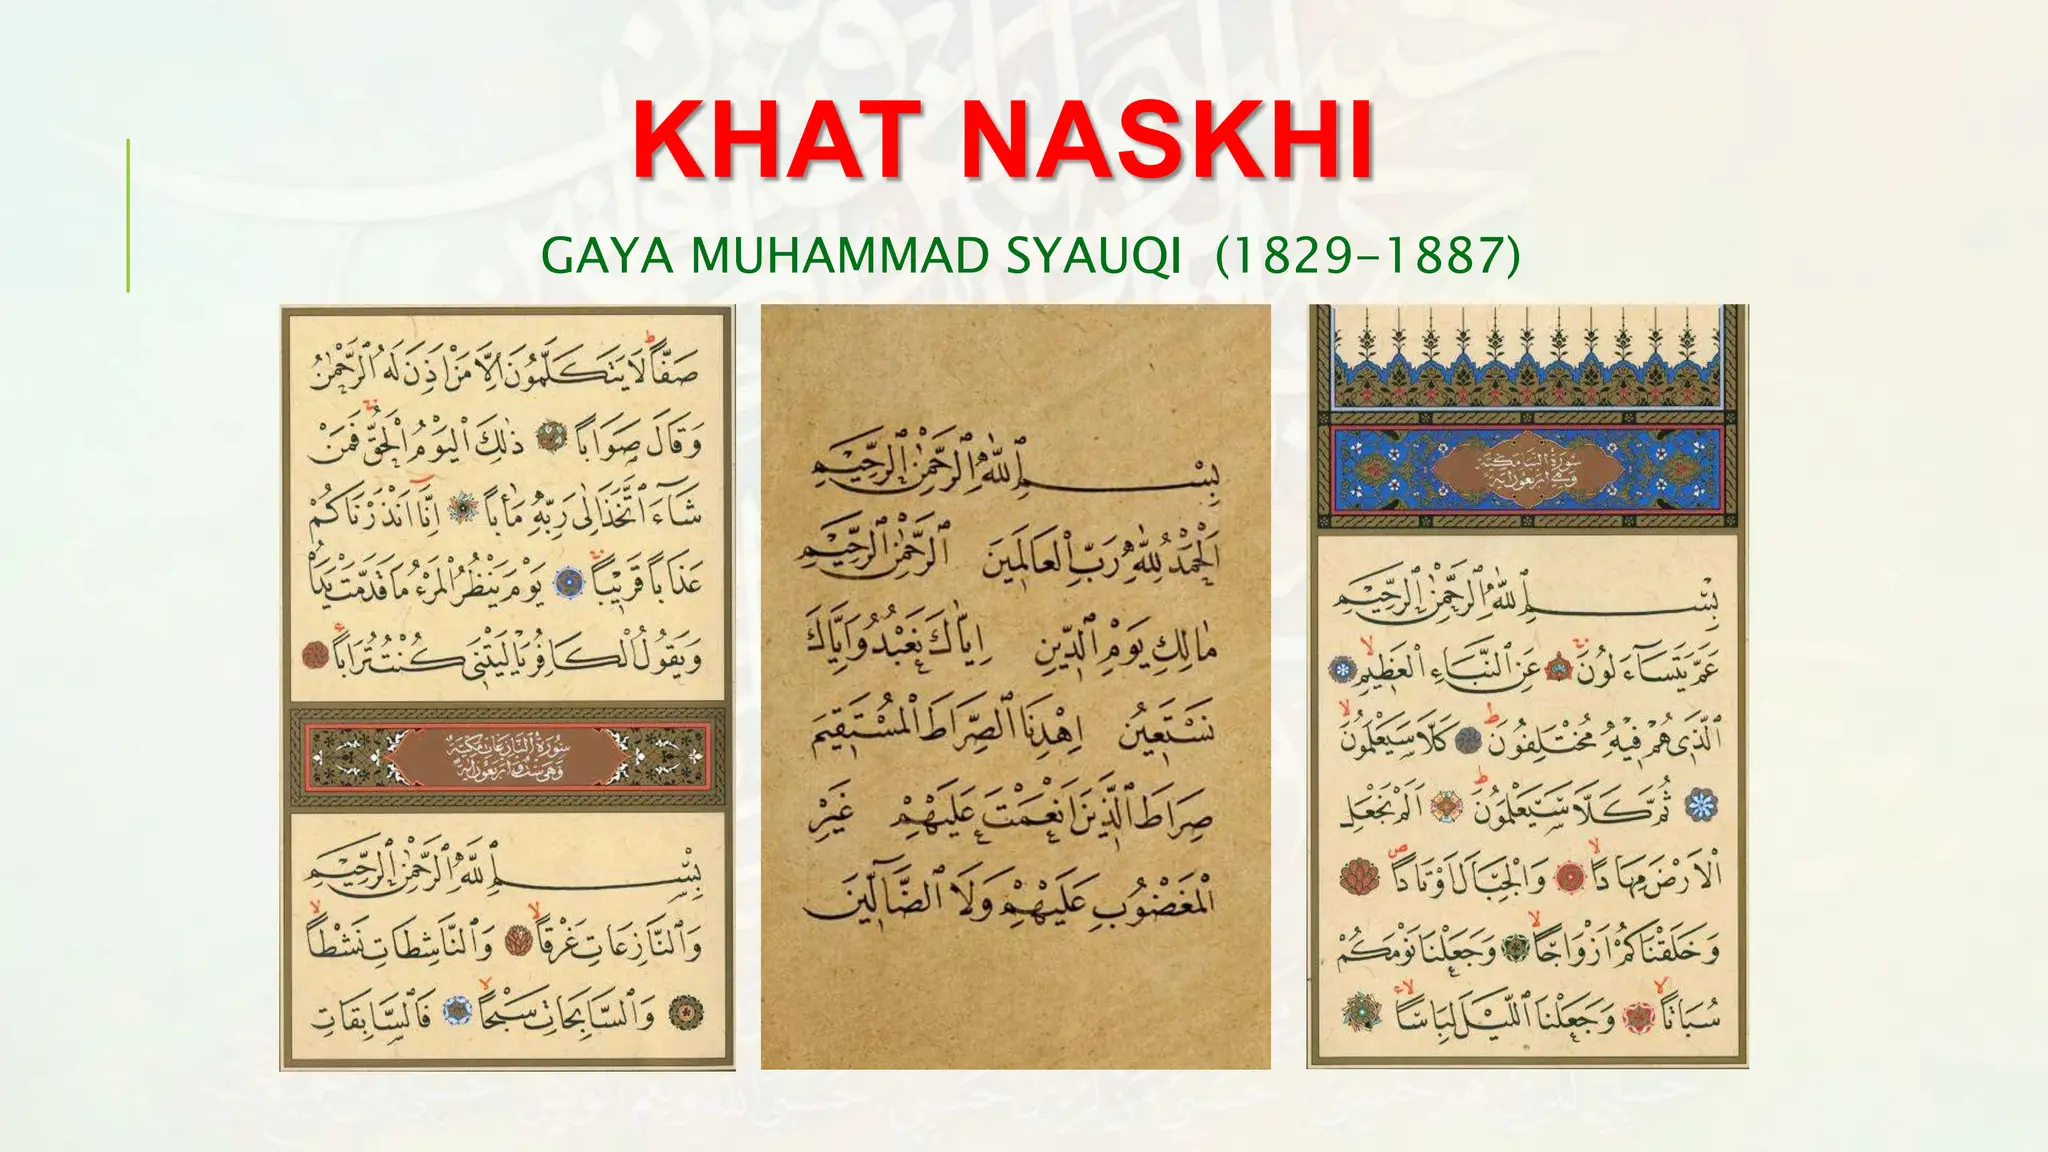 KHAT NASKHI
GAYA MUHAMMAD SYAUQI (1829-1887)
صَفًّا ط لَا يَتَكَلَّمُونَ اِلَّا مَنْ اَذِنَ لَهُ الرَّحْمٰنُ
وَقَالَ صَوَابًا ذٰلِكَ الْيَوْمُ الْحَقُّ فَمَنْ
شَآءَ اتَّخَذَ اِلٰى رَبِّهٖ مَاٰبًا اِنَّٓا اَنْذَرْنَاكُمْ
عَذَابًا قَرِيبًا يَوْمَ يَنْظُرُ الْمَرْءُ مَا قَدَّمَتْ يَدَاهُ
وَيَقُولُ الْكَافِرُ يَا لَيْتَنِى كُنْتُ تُرَابًا
سُورَةُ النَّازِعَاتِ مَكِّيَّةٌ
وَهِىَ سِتٌّ وَاَرْبَعُونَ اٰيَةً
بِسْمِ اللّٰهِ الرَّحْمٰنِ الرَّحِيمِ
وَالنَّازِعَاتِ غَرْقًا لا وَالنَّاشِطَاتِ نَشْطًا لا
وَالسَّابِحَاتِ سَبْحًا لا فَالسَّابِقَاتِ
بِسْمِ اللّٰهِ الرَّحْمٰنِ الرَّحِيمِ
اَلْحَمْدُ لِلّٰهِ رَبِّ الْعَالَمِينَ الرَّحْمٰنِ الرَّحِيمِ
مَالِكِ يَوْمِ الدِّينِ اِيَّاكَ نَعْبُدُ وَاِيَّاكَ
نَسْتَعِينُ اِهْدِنَا الصِّرَاطَ الْمُسْتَقِيمَ
صِرَاطَ الَّذِينَ اَنْعَمْتَ عَلَيْهِمْ غَيْرِ
الْمَغْضُوبِ عَلَيْهِمْ وَلَا الضَّآلِّينَ
سُورَةُ النَّبَأِ مَكِّيَّةٌ
وَهِىَ اَرْبَعُونَ اٰيَةً
بِسْمِ اللّٰهِ الرَّحْمٰنِ الرَّحِيمِ
عَمَّ يَتَسَآءَلُونَ عَنِ النَّبَاِ الْعَظِيمِ لا
الَّذِى هُمْ فِيهِ مُخْتَلِفُونَ ط كَلَّا سَيَعْلَمُونَ لا
ثُمَّ كَلَّا سَيَعْلَمُونَ ط اَلَمْ نَجْعَلِ
الْاَرْضَ مِهَادًا لا وَالْجِبَالَ اَوْتَادًا ص
وَخَلَقْنَاكُمْ اَزْوَاجًا لا وَجَعَلْنَا نَوْمَكُمْ
سُبَاتًا لا وَجَعَلْنَا اللَّيْلَ لِبَاسًا لا